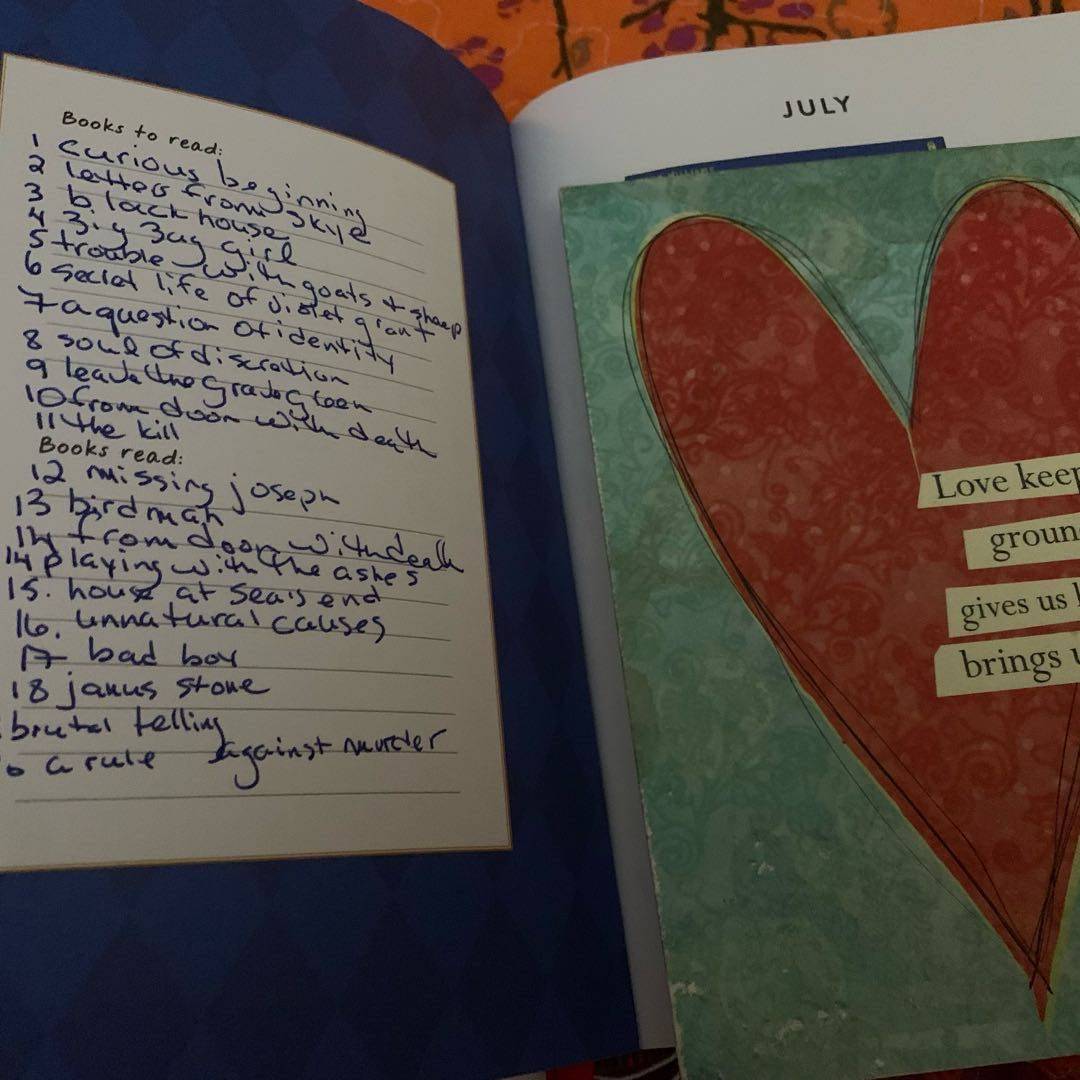 Books to read:
1 curious beginning
2 letters from skye
3 black house
4 zig zag girl
5 trouble with goats + sheep
6 secret life of violet grant
7 a question of identity
8 soul of discretion
9 leave the grave green
10 from door with death
11 the kill
Books read:
12 missing joseph
13 birdman
14 from door with death
14 playing with the ashes
15. house at sea's end
16. unnatural causes
17 bad boy
18 janus stone
brutal telling
a rule against murder
JULY
Love keep
groun
gives us
brings u